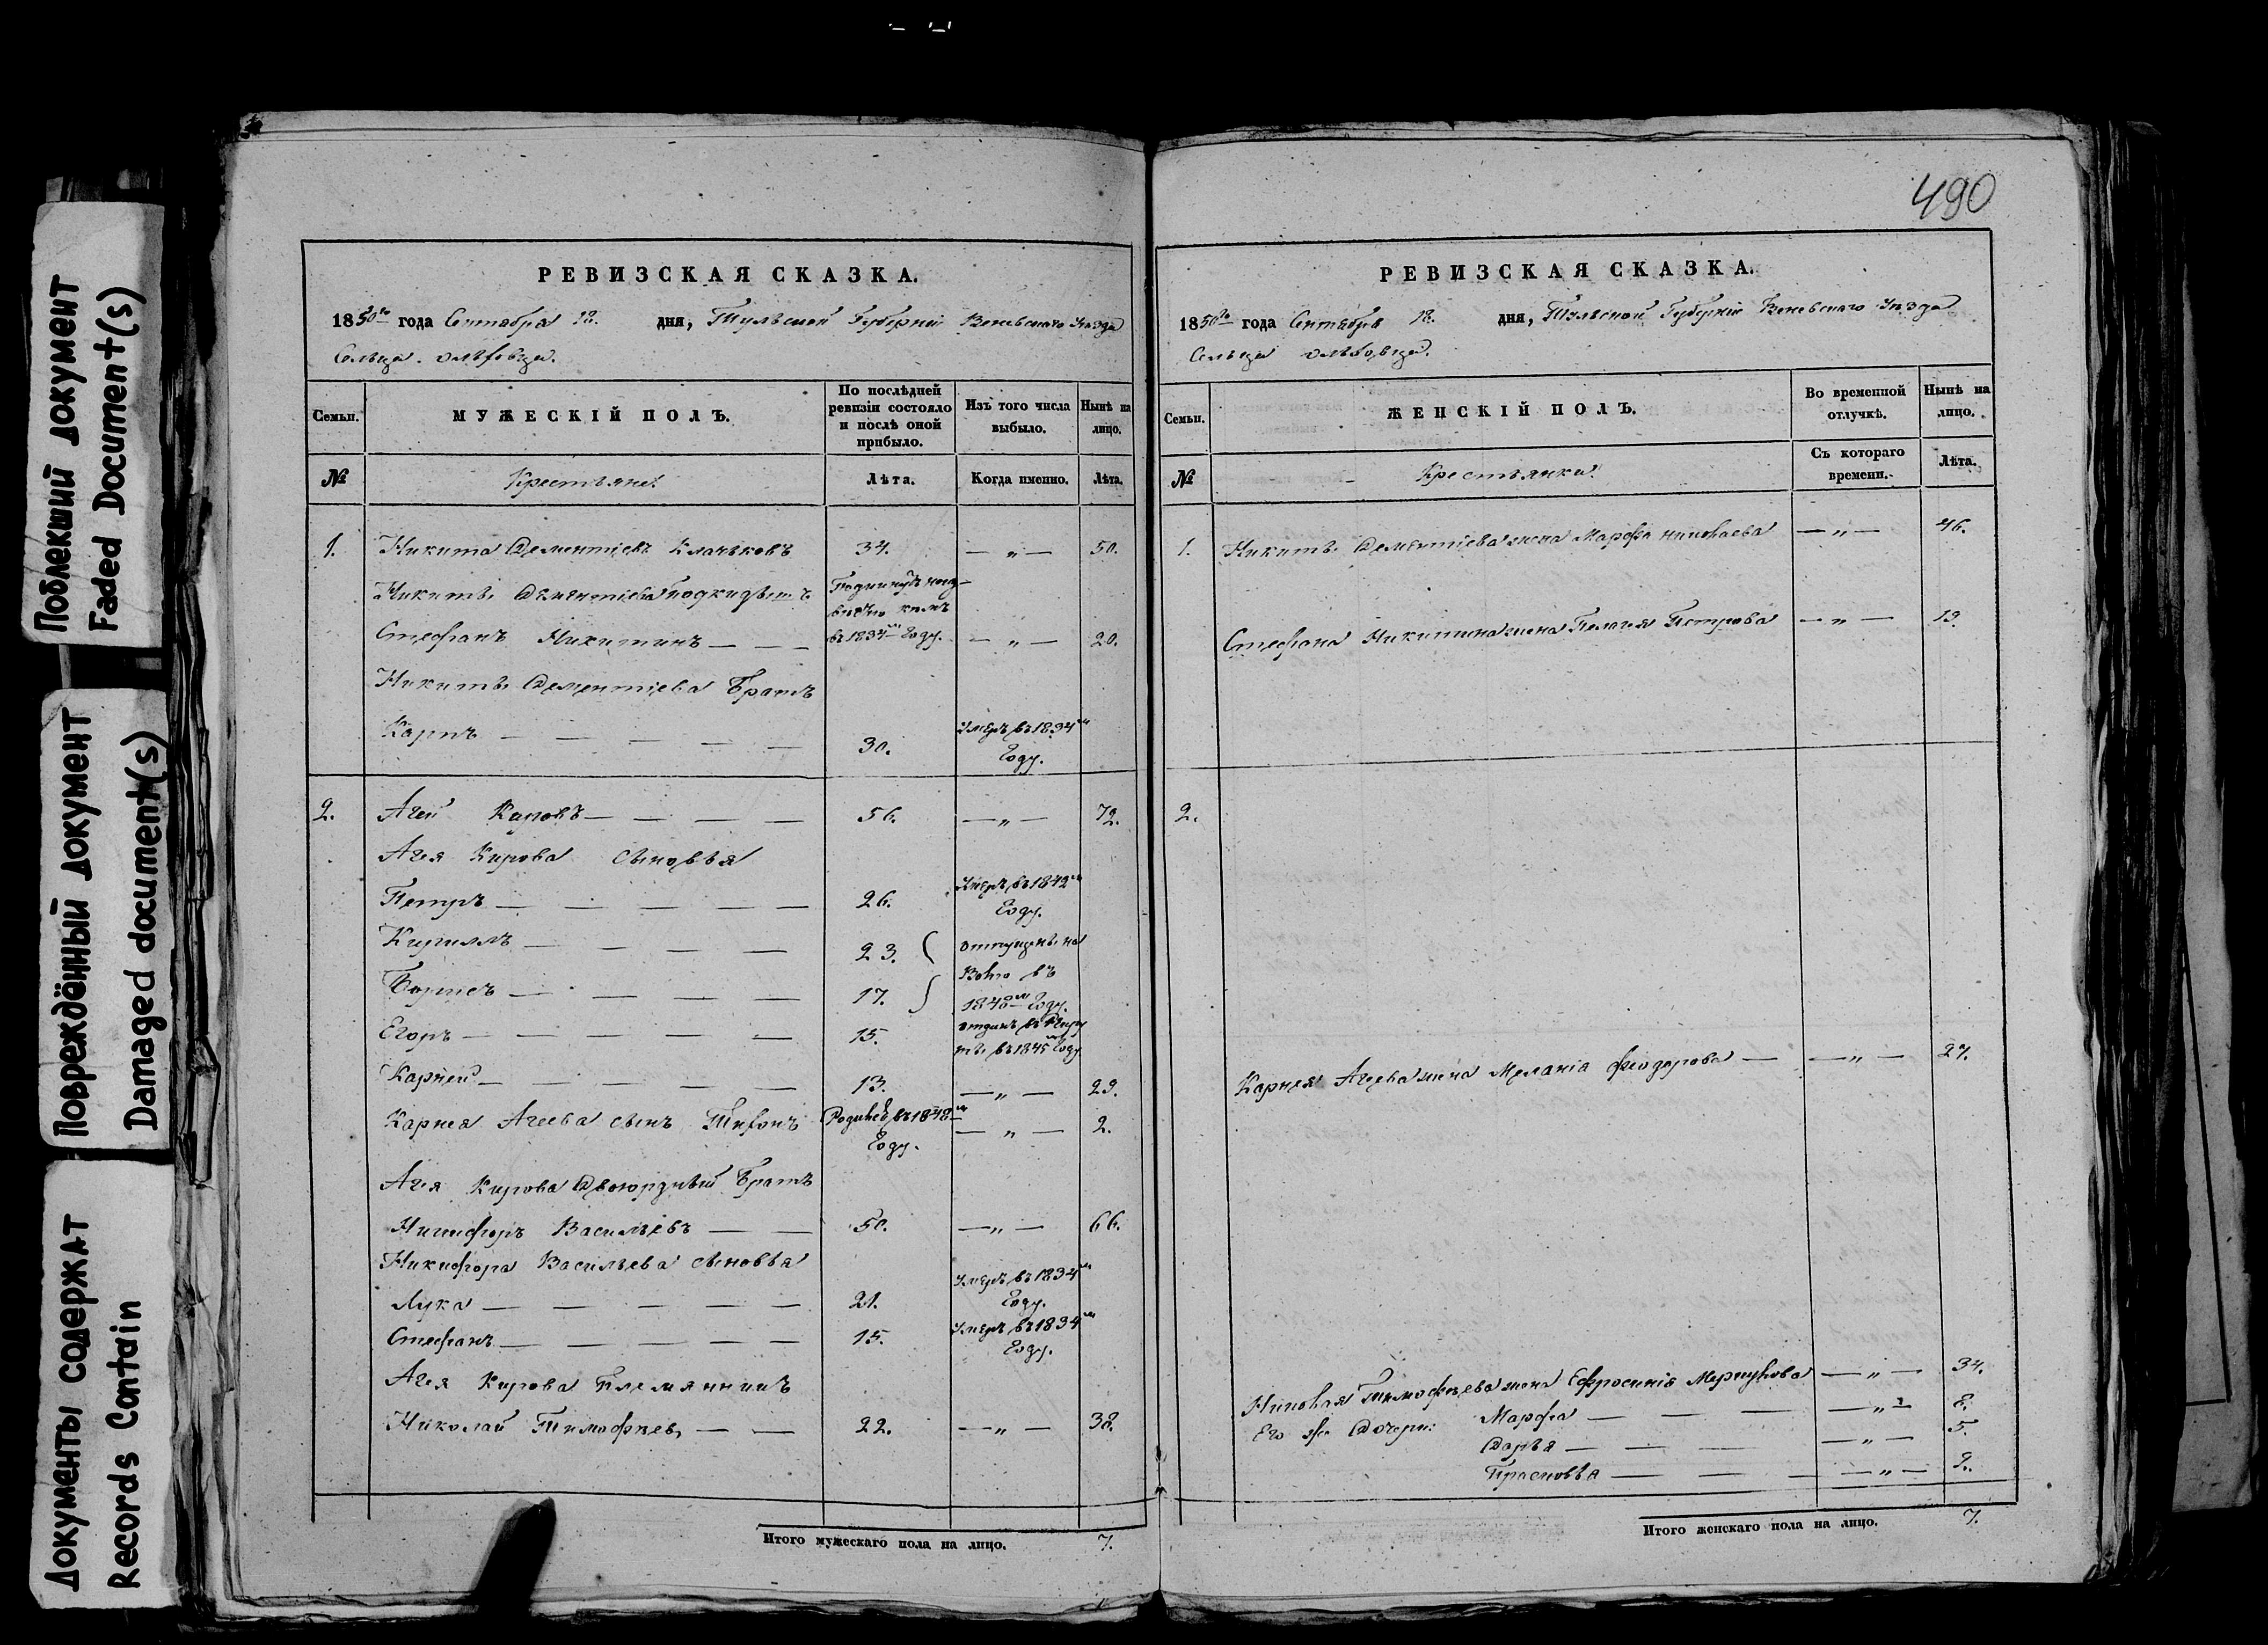 Поблекший документ
Faded Document(s)
Повреждённый документ
Damaged document(s)
Документы содержат
Records Contain
РЕВИЗСКАЯ СКАЗКА.
1850го года Сентября 12. дня, Тульской Губернiи Веневскаго Уѣзда
Сельца Ольховца.
Семьи.
МУЖЕСКIЙ ПОЛЪ.
По послѣдней ревизiи состояло и послѣ оной прибыло.
Изъ того числа выбыло.
Нынѣ на лицо.
№
Крестьяне.
Лѣта.
Когда именно.
Лѣта.
1. Никита Дементiевъ 34. — „ — 50.
Никиты Дементiева подкидышъ
Стефанъ Никитинъ — — — въ 1834м Году. — „ — 20.
Никиты Дементiева Братъ
Карпъ — — — — — 30. Умеръ въ 1834м Году.
2. Агей Кировъ — — — — 56. — „ — 72.
Агея Кирова сыновья
Петръ — — — — — 26. Умеръ въ 1842м Году.
Кириллъ — — — — 23. отпущены на
Борисъ — — — — 17. Волю въ 1848м Году.
Егоръ — — — — — 15. отданъ въ Рекруты въ 1845м Году
Карней — — — — — 13. — „ — 29.
Карнея Агеева сынъ Тихонъ Родился въ 1848м Году. — „ — 2.
Агея Кирова Двоюродный Братъ
Никифоръ Васильевъ — — 50. — „ — 66.
Никифора Васильева сыновья
Лука — — — — — 21. Умеръ въ 1834м Году.
Стефанъ — — — — 15. Умеръ въ 1834м Году.
Агея Кирова Племянникъ
Николай Тимофѣевъ — — 22. — „ — 38.
Итого мужескаго пола на лицо. 7.
490
РЕВИЗСКАЯ СКАЗКА.
1850го года Сентября 12. дня, Тульской Губернiи Веневскаго Уѣзда
Сельца Ольховца.
Семьи.
ЖЕНСКIЙ ПОЛЪ.
Во временной отлучкѣ.
Нынѣ на лицо.
№
Крестьянки.
Съ котораго времени.
Лѣта.
1. Никиты Дементiева жена Марфа Николаева — „ — 46.
Стефана Никитина жена Пелагея Петрова — „ — 19.
2.
Карнея Агеева жена Меланiя Феодорова — — „ — 27.
Николая Тимофѣева жена Ефросинiя Меркулова — „ — 34.
Его же Дочери: Марфа — — — — „ — 8.
Дарья — — — — „ — 5.
Прасковья — — — — „ — 2.
Итого женскаго пола на лицо. 7.